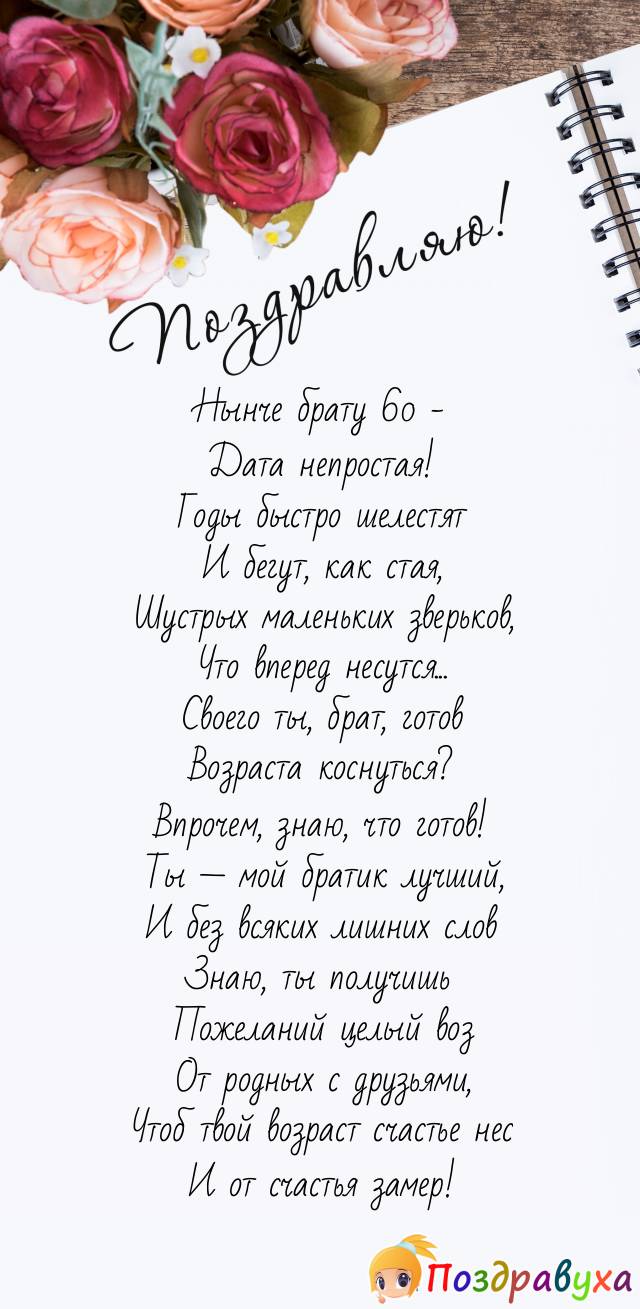 Поздравляю!
Нынче брату 60 -
Дата непростая!
Годы быстро шелестят
И бегут, как стая,
Шустрых маленьких зверьков,
Что вперед несутся...
Своего ты, брат, готов
Возраста коснуться?
Впрочем, знаю, что готов!
Ты — мой братик лучший,
И без всяких лишних слов
Знаю, ты получишь
Пожеланий целый воз
От родных с друзьями,
Чтоб твой возраст счастье нес
И от счастья замер!
Поздравуха